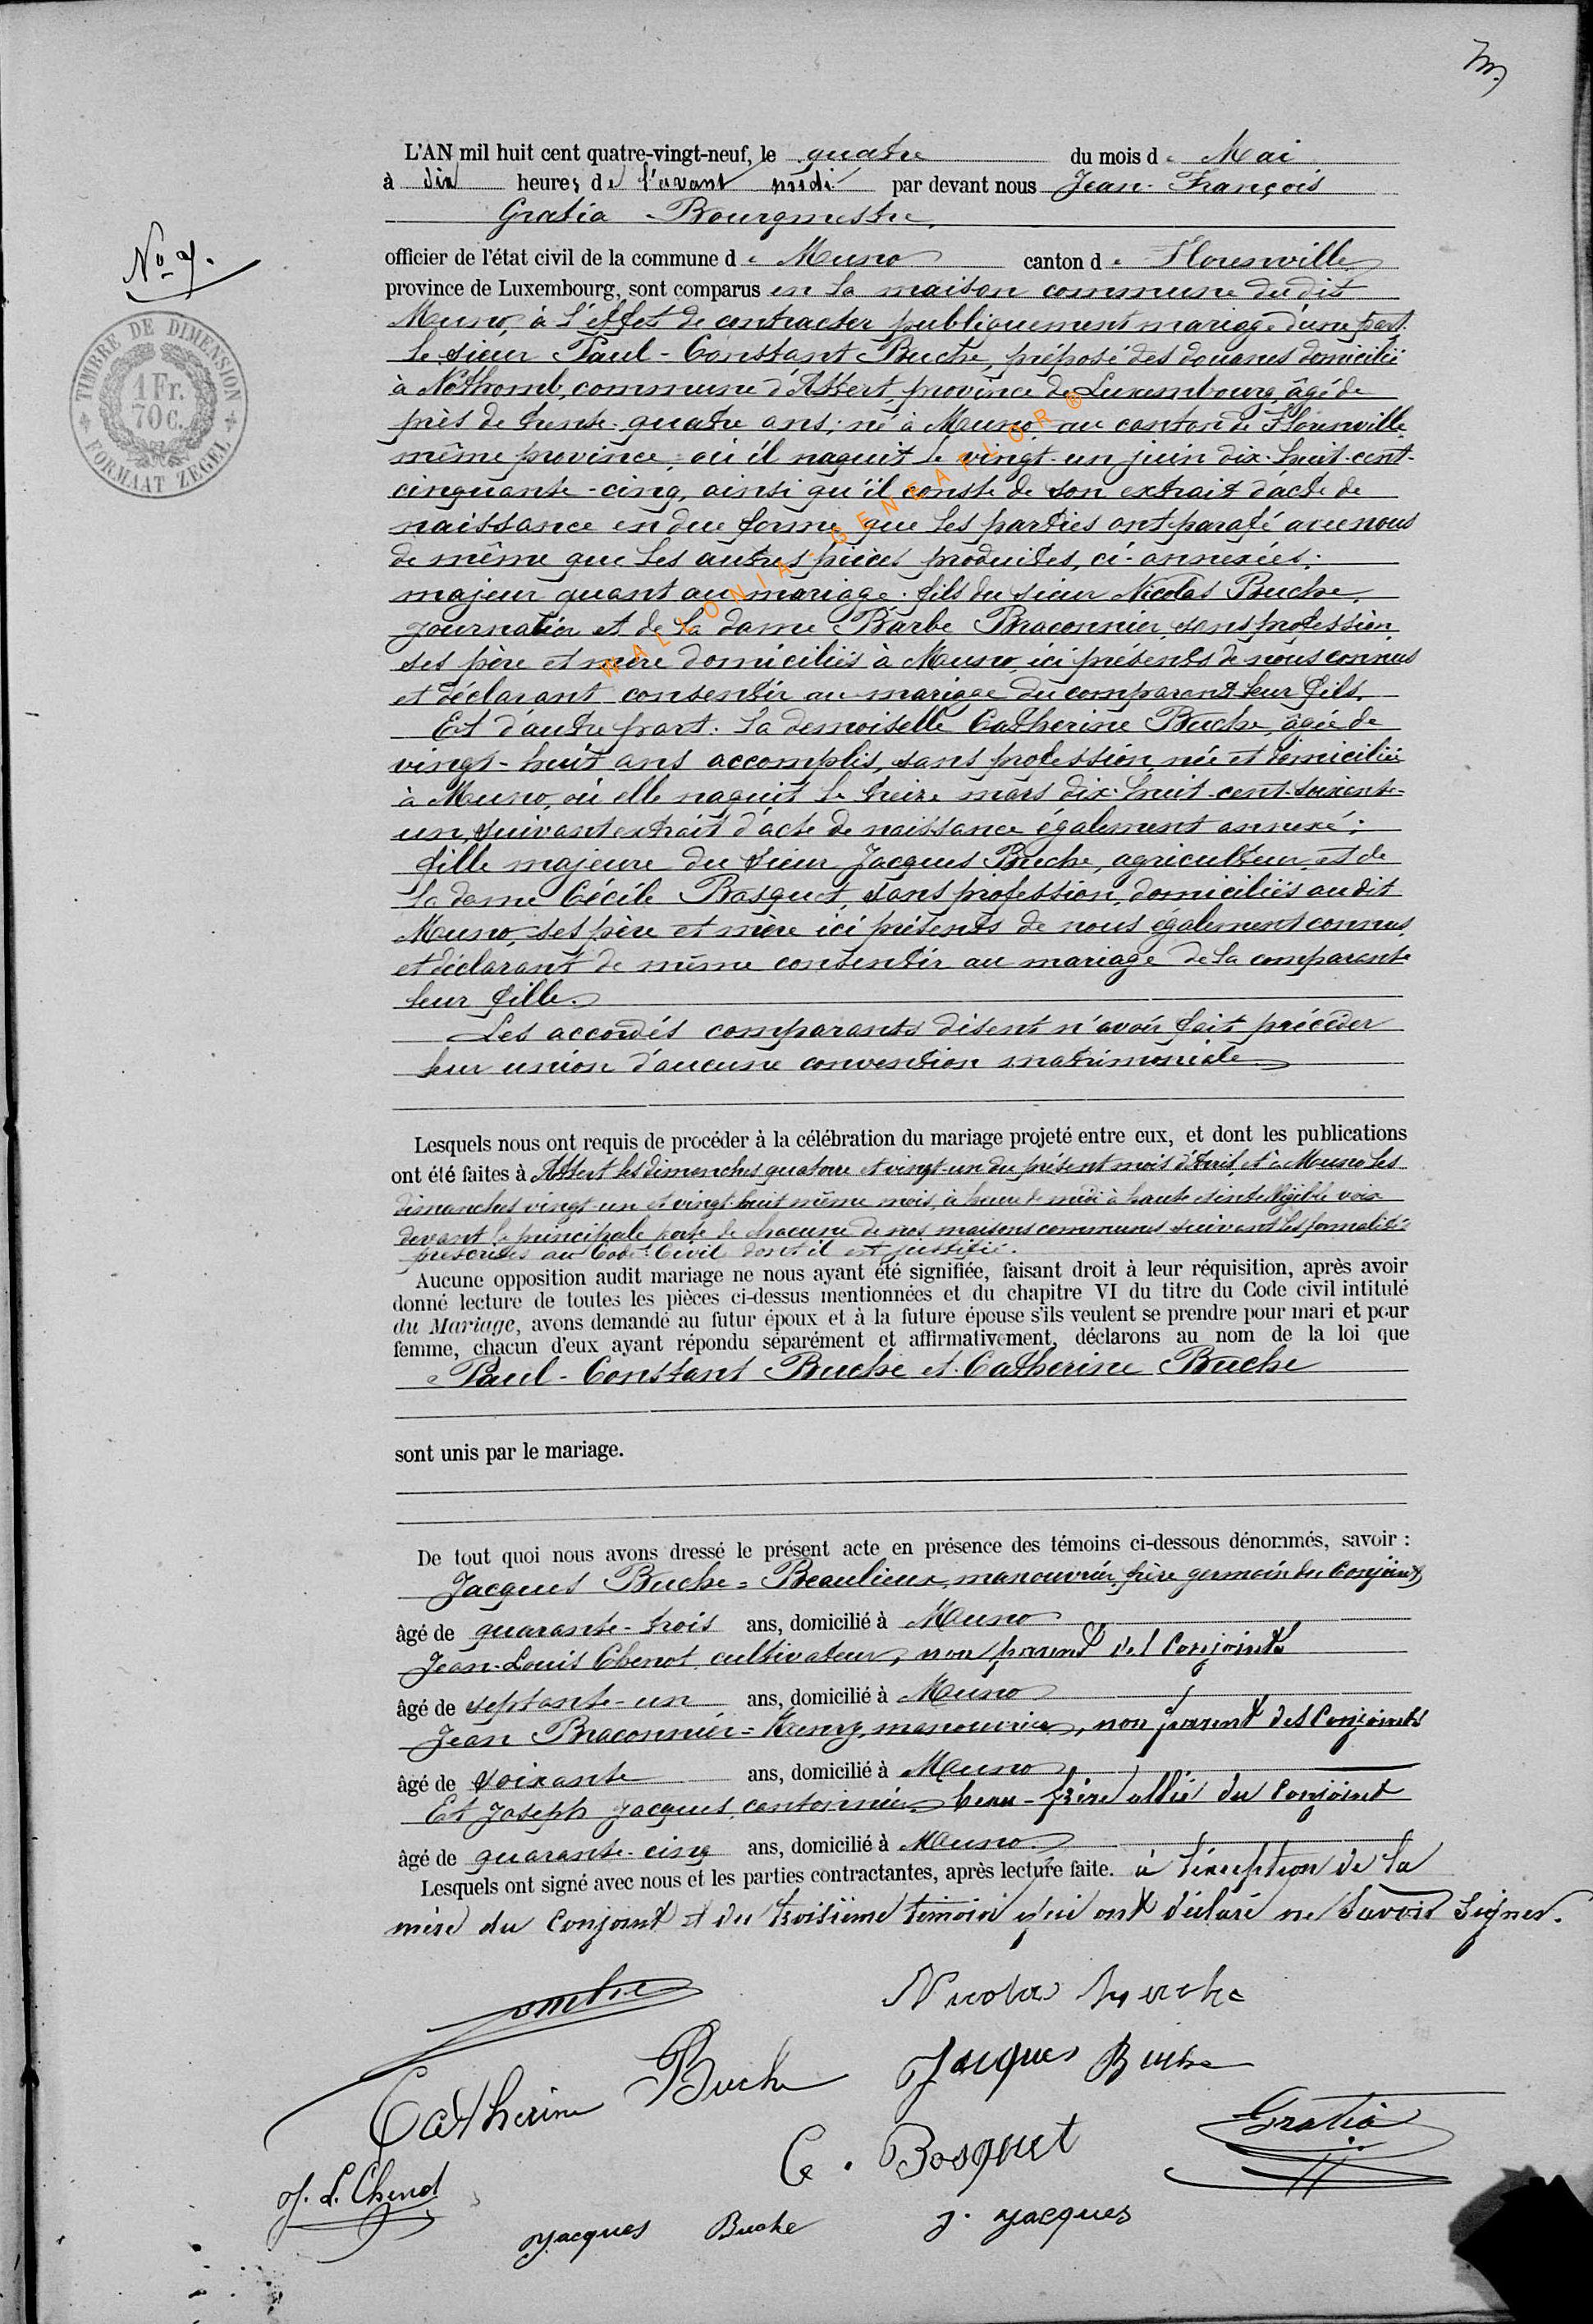 L'AN mil huit cent quatre-vingt-neuf, le quatre du mois de Mai
à dix heures de l'avant midi par devant nous Jean-François
Gratia Bourgmestre,
officier de l'état civil de la commune de Muno canton de Florenville
province de Luxembourg, sont comparus en la maison commune du dit
Muno, à l'effet de contracter publiquement mariage d'une part:
le sieur Paul-Constant Buche, préposé des douanes domicilié
à Nothomb, commune d'Attert, province de Luxembourg, âgé de
près de trente-quatre ans; né à Muno au canton de Florenville
même province, où il naquit le vingt-un juin dix-huit-cent-
cinquante-cinq, ainsi qu'il conste de son extrait d'acte de
naissance en due forme que les parties ont parafé avec nous
de même que les autres pièces produites, ci-annexées;
majeur quant au mariage; fils du sieur Nicolas Buche,
journalier et de la dame Barbe Braconnier, sans profession,
ses père et mère domiciliés à Muno, ici présents de nous connus
et déclarant consentir au mariage du comparant leur fils.
Et d'autre part: la demoiselle Catherine Buche, âgée de
vingt-huit ans accomplis, sans profession, née et domiciliée
à Muno, où elle naquit le treize mars dix-huit-cent-soixante-
un, suivant extrait d'acte de naissance également annexé;
fille majeure du sieur Jacques Buche, agriculteur et de
la dame Cécile Bosquet, sans profession, domiciliés au dit
Muno, ses père et mère ici présents de nous également connus
et déclarant de même consentir au mariage de la comparante
leur fille.
Les accordés comparants disent n'avoir fait précéder
leur union d'aucune convention matrimoniale
Lesquels nous ont requis de procéder à la célébration du mariage projeté entre eux, et dont les publications
ont été faites à Attert les dimanches quatorze et vingt-un du présent mois d'Avril, et à Muno les
dimanches vingt-un et vingt-huit même mois, à heure de midi à haute et intelligible voix
devant la principale porte de chacune de nos maisons communes suivant les formalités
prescrites au Code Civil dont il est justifié.
Aucune opposition audit mariage ne nous ayant été signifiée, faisant droit à leur réquisition, après avoir
donné lecture de toutes les pièces ci-dessus mentionnées et du chapitre VI du titre du Code civil intitulé
du Mariage, avons demandé au futur époux et à la future épouse s'ils veulent se prendre pour mari et pour
femme, chacun d'eux ayant répondu séparément et affirmativement, déclarons au nom de la loi que
Paul-Constant Buche et Catherine Buche
sont unis par le mariage.
De tout quoi nous avons dressé le présent acte en présence des témoins ci-dessous dénommés, savoir :
Jacques Buche=Beaulieux, manouvrier, frère germain du Conjoint
âgé de quarante-trois ans, domicilié à Muno
Jean-Louis Chenot, cultivateur, non parent des Conjoints
âgé de septante-un ans, domicilié à Muno
Jean Braconnier= manouvrier, non parent des Conjoints
âgé de soixante ans, domicilié à Muno
Et Joseph Jacques, cantonnier, beau-frère allié du Conjoint
âgé de quarante-cinq ans, domicilié à Muno.
Lesquels ont signé avec nous et les parties contractantes, après lecture faite. à l'exception de la
mère du Conjoint et du troisième témoin qui ont déclaré ne savoir Signer.
Nicolas Buche
Catherine Buche Jacques Buche
Gratia
C. Bosquet
J. L. Chenot
Jacques Buche J. Jacques
No 7.
TIMBRE DE DIMENSION
1 Fr.
70 C.
FORMAAT ZEGEL
WALLONIA-GENEAFLOR ®